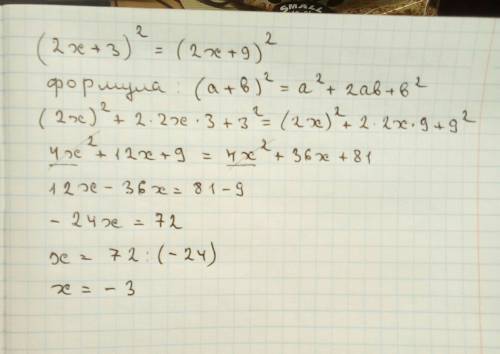 SMALL
(2x+3)² = (2x+9)²
формула: (a+b)² = a² + 2ab + b²
(2x)² + 2·2x·3 + 3² = (2x)² + 2·2x·9 + 9²
4x² + 12x + 9 = 4x² + 36x + 81
12x - 36x = 81 - 9
- 24x = 72
x = 72 : (-24)
x = - 3